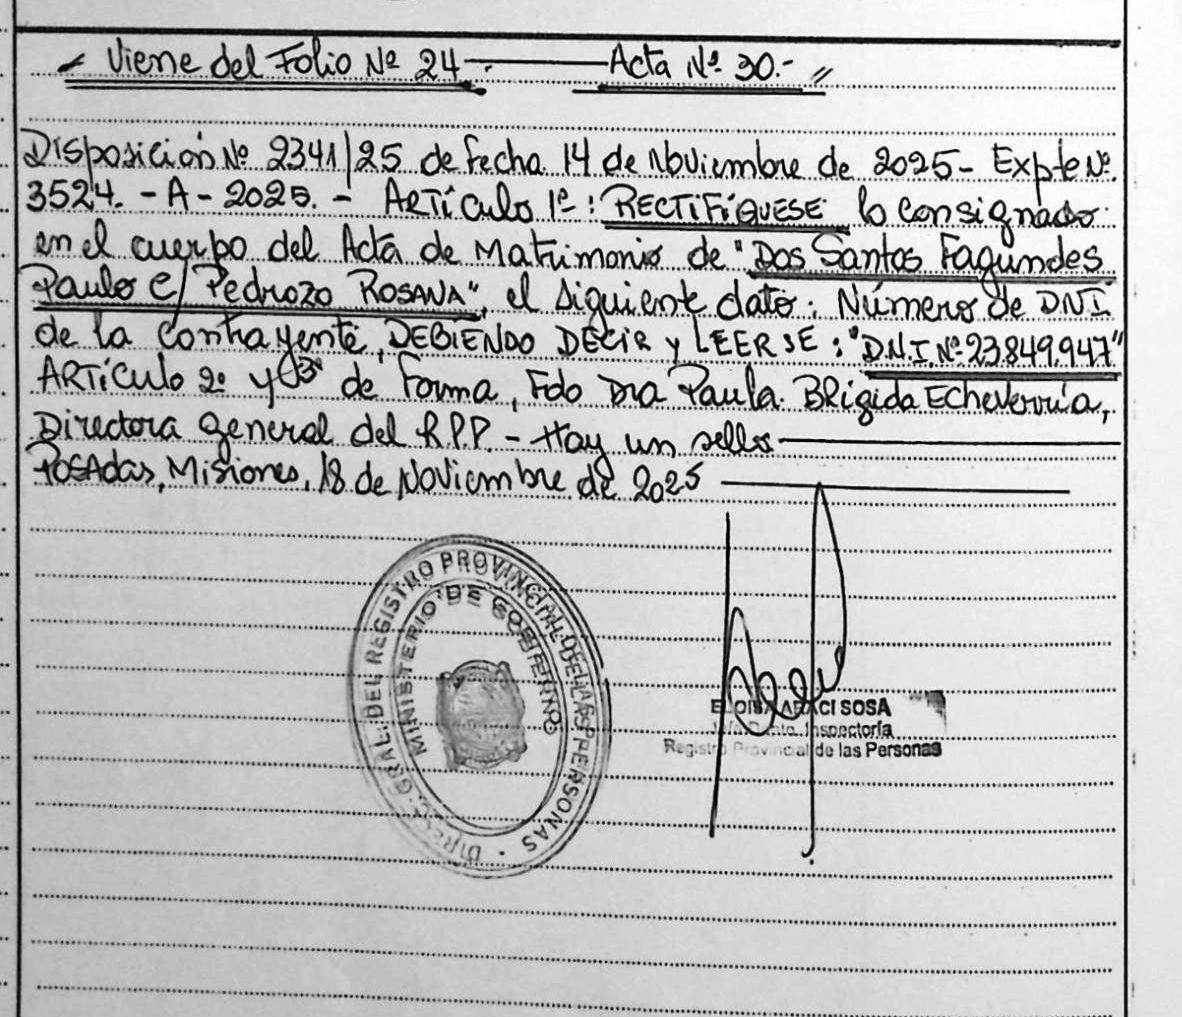 " Viene del Folio Nº 24 -. Acta Nº 30.- "
Disposición Nº 2341/25 de fecha 14 de Noviembre de 2025 - Expte Nº
3524. - A - 2025. - Artículo 1º: RECTIFÍQUESE lo consignado
en el cuerpo del Acta de Matrimonio de "Dos Santos Fagundes
Paulo c/ Pedrozo ROSANA", el siguiente dato: Número de DNI
de la contrayente, DEBIENDO DECIR y LEERSE: "D.N.I. Nº 23.849.947"
ARTÍCULO 2º y 3º de Forma, Fdo Dra Paula Brigida Echeverría,
Directora General del R.P.P. - Hay un sello
Posadas, Misiones, 18 de Noviembre de 2025
DIREC. GRAL. DEL REGISTRO PROVINCIAL DE LAS PERSONAS
MINISTERIO DE GOBIERNO
ARACI SOSA
Inspectoría
Registro Provincial de las Personas